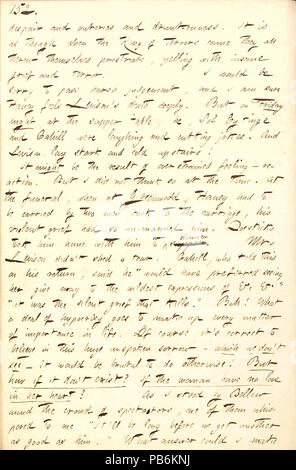 152.
despair and outcries and demonstrativeness. It is
as though when the King of Terrors came they all
threw themselves prostrate, yelling with insane
grief and terror. I would be
sorry to pass harsh judgement and I am sure
Haney feels Levison's death deeply. But on Friday
night at the supper table, he, Sol Eytinge
and Cahill were laughing and cutting jokes. And
Levison lay stark and cold upstairs!
It might be the result of overstrained feeling — re-
action. But I did not think so at the time. At
the funeral, when at Greenwood, Haney had to
be carried by two men back to the carriage, his
violent grief had so unmanned him.
took him home with him to dinner. Mrs
Levison didn't shed a tear. Cahill, who told this
on his return, said he "would have preferred seeing
her give away to the wildest expressions of &c &c"
"it was the silent grief that kills!" Bah! What
a deal of hypocrisy goes to make up every matter
of importance in life. Of course it's correct to
believe in this huge unspoken sorrow — while we don't
see — it would be brutal to do otherwise. But
how if it don't exist? If the woman have no love
in her heart? As I stood by Bellew
amid the crowd of spectators, one of them whis-
pered to me "It'll be long before we get another
as good as him." What answer could I make